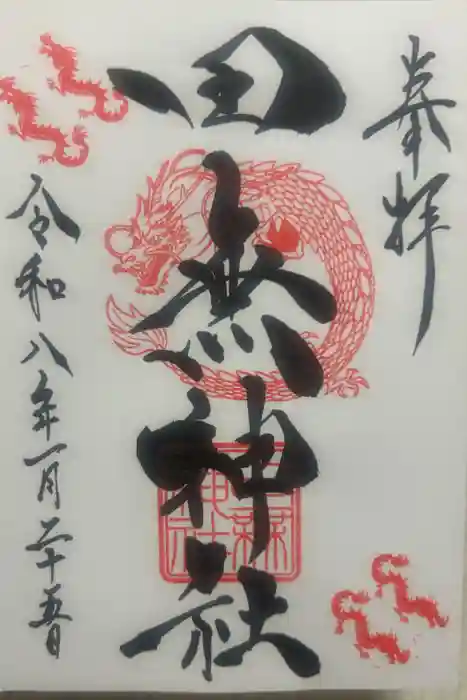 奉拝
田無神社
田無神社
令和八年一月二十五日